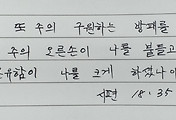 또 주의 구원하는 방패를
주의 오른손이 나를 붙들고
온유함이 나를 크게 하셨나이
시편 18:35